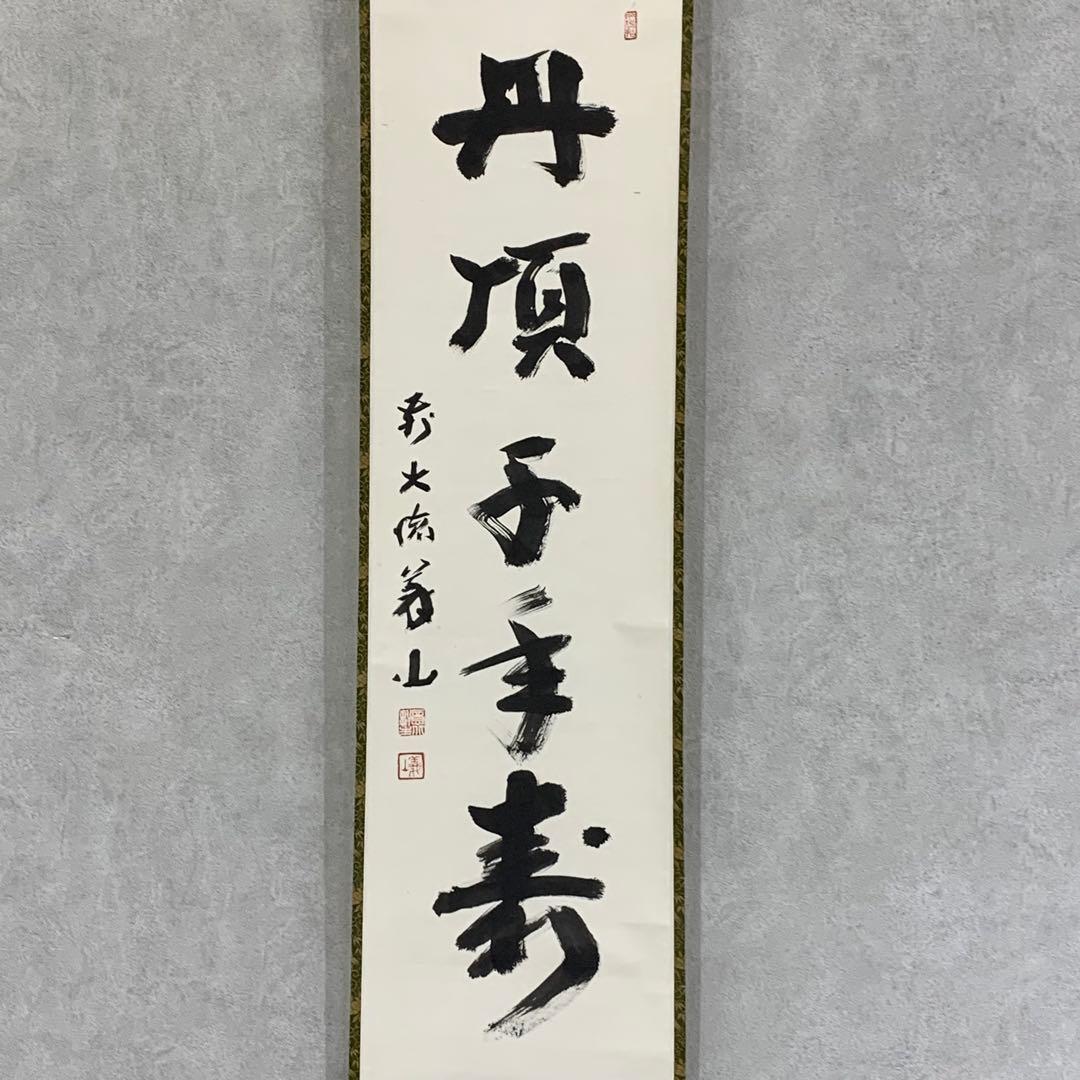 丹頂千年寿
前大徳義山